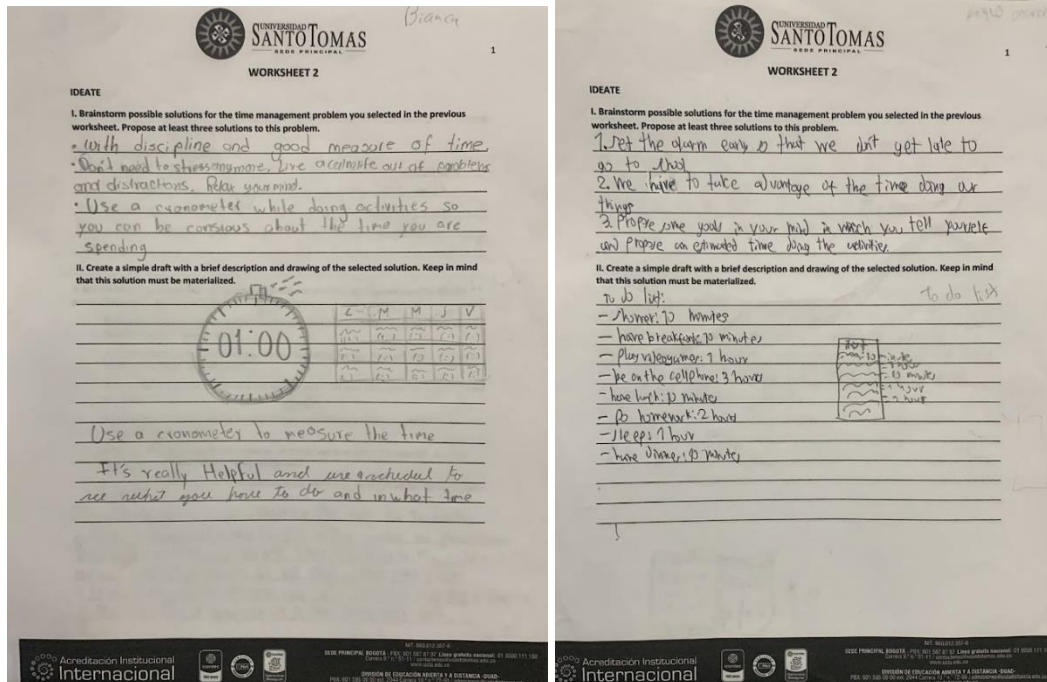 Bianca
UNIVERSIDAD
SANTO TOMAS
SEDE PRINCIPAL
1
WORKSHEET 2
IDEATE
I. Brainstorm possible solutions for the time management problem you selected in the previous
worksheet. Propose at least three solutions to this problem.
• With discipline and good measure of time.
• Don't need to stress anymore. Live a calm life out of problems
and distractions. Relax your mind.
• Use a cronometer while doing activities so
you can be consious about the time you are
spending
II. Create a simple draft with a brief description and drawing of the selected solution. Keep in mind
that this solution must be materialized.
L M M J V
01:00
Use a cronometer to measure the time
It's really Helpful and use a schedul to
see what you have to do and in what time
Acreditación Institucional
Internacional
SEDE PRINCIPAL BOGOTÁ
DIVISIÓN DE EDUCACIÓN ABIERTA Y A DISTANCIA -DUAD-
UNIVERSIDAD
SANTO TOMAS
SEDE PRINCIPAL
1
WORKSHEET 2
IDEATE
I. Brainstorm possible solutions for the time management problem you selected in the previous
worksheet. Propose at least three solutions to this problem.
1. set the alarm early so that we don't get late to
go to
2. We have to take advantage of the time doing
things
3. Propose some goals in your mind in which you tell yourself
and propose an estimated time doing the activities.
II. Create a simple draft with a brief description and drawing of the selected solution. Keep in mind
that this solution must be materialized.
To do list:
To do list
- shower: 10 minutes
- have breakfast: 10 minutes
- play videogames: 1 hour
- be on the cellphone: 3 hours
- have lunch: 10 minutes
- Do homework: 2 hours
- sleep: 1 hour
- have dinner: 10 minutes
Acreditación Institucional
Internacional
SEDE PRINCIPAL BOGOTÁ
DIVISIÓN DE EDUCACIÓN ABIERTA Y A DISTANCIA -DUAD-